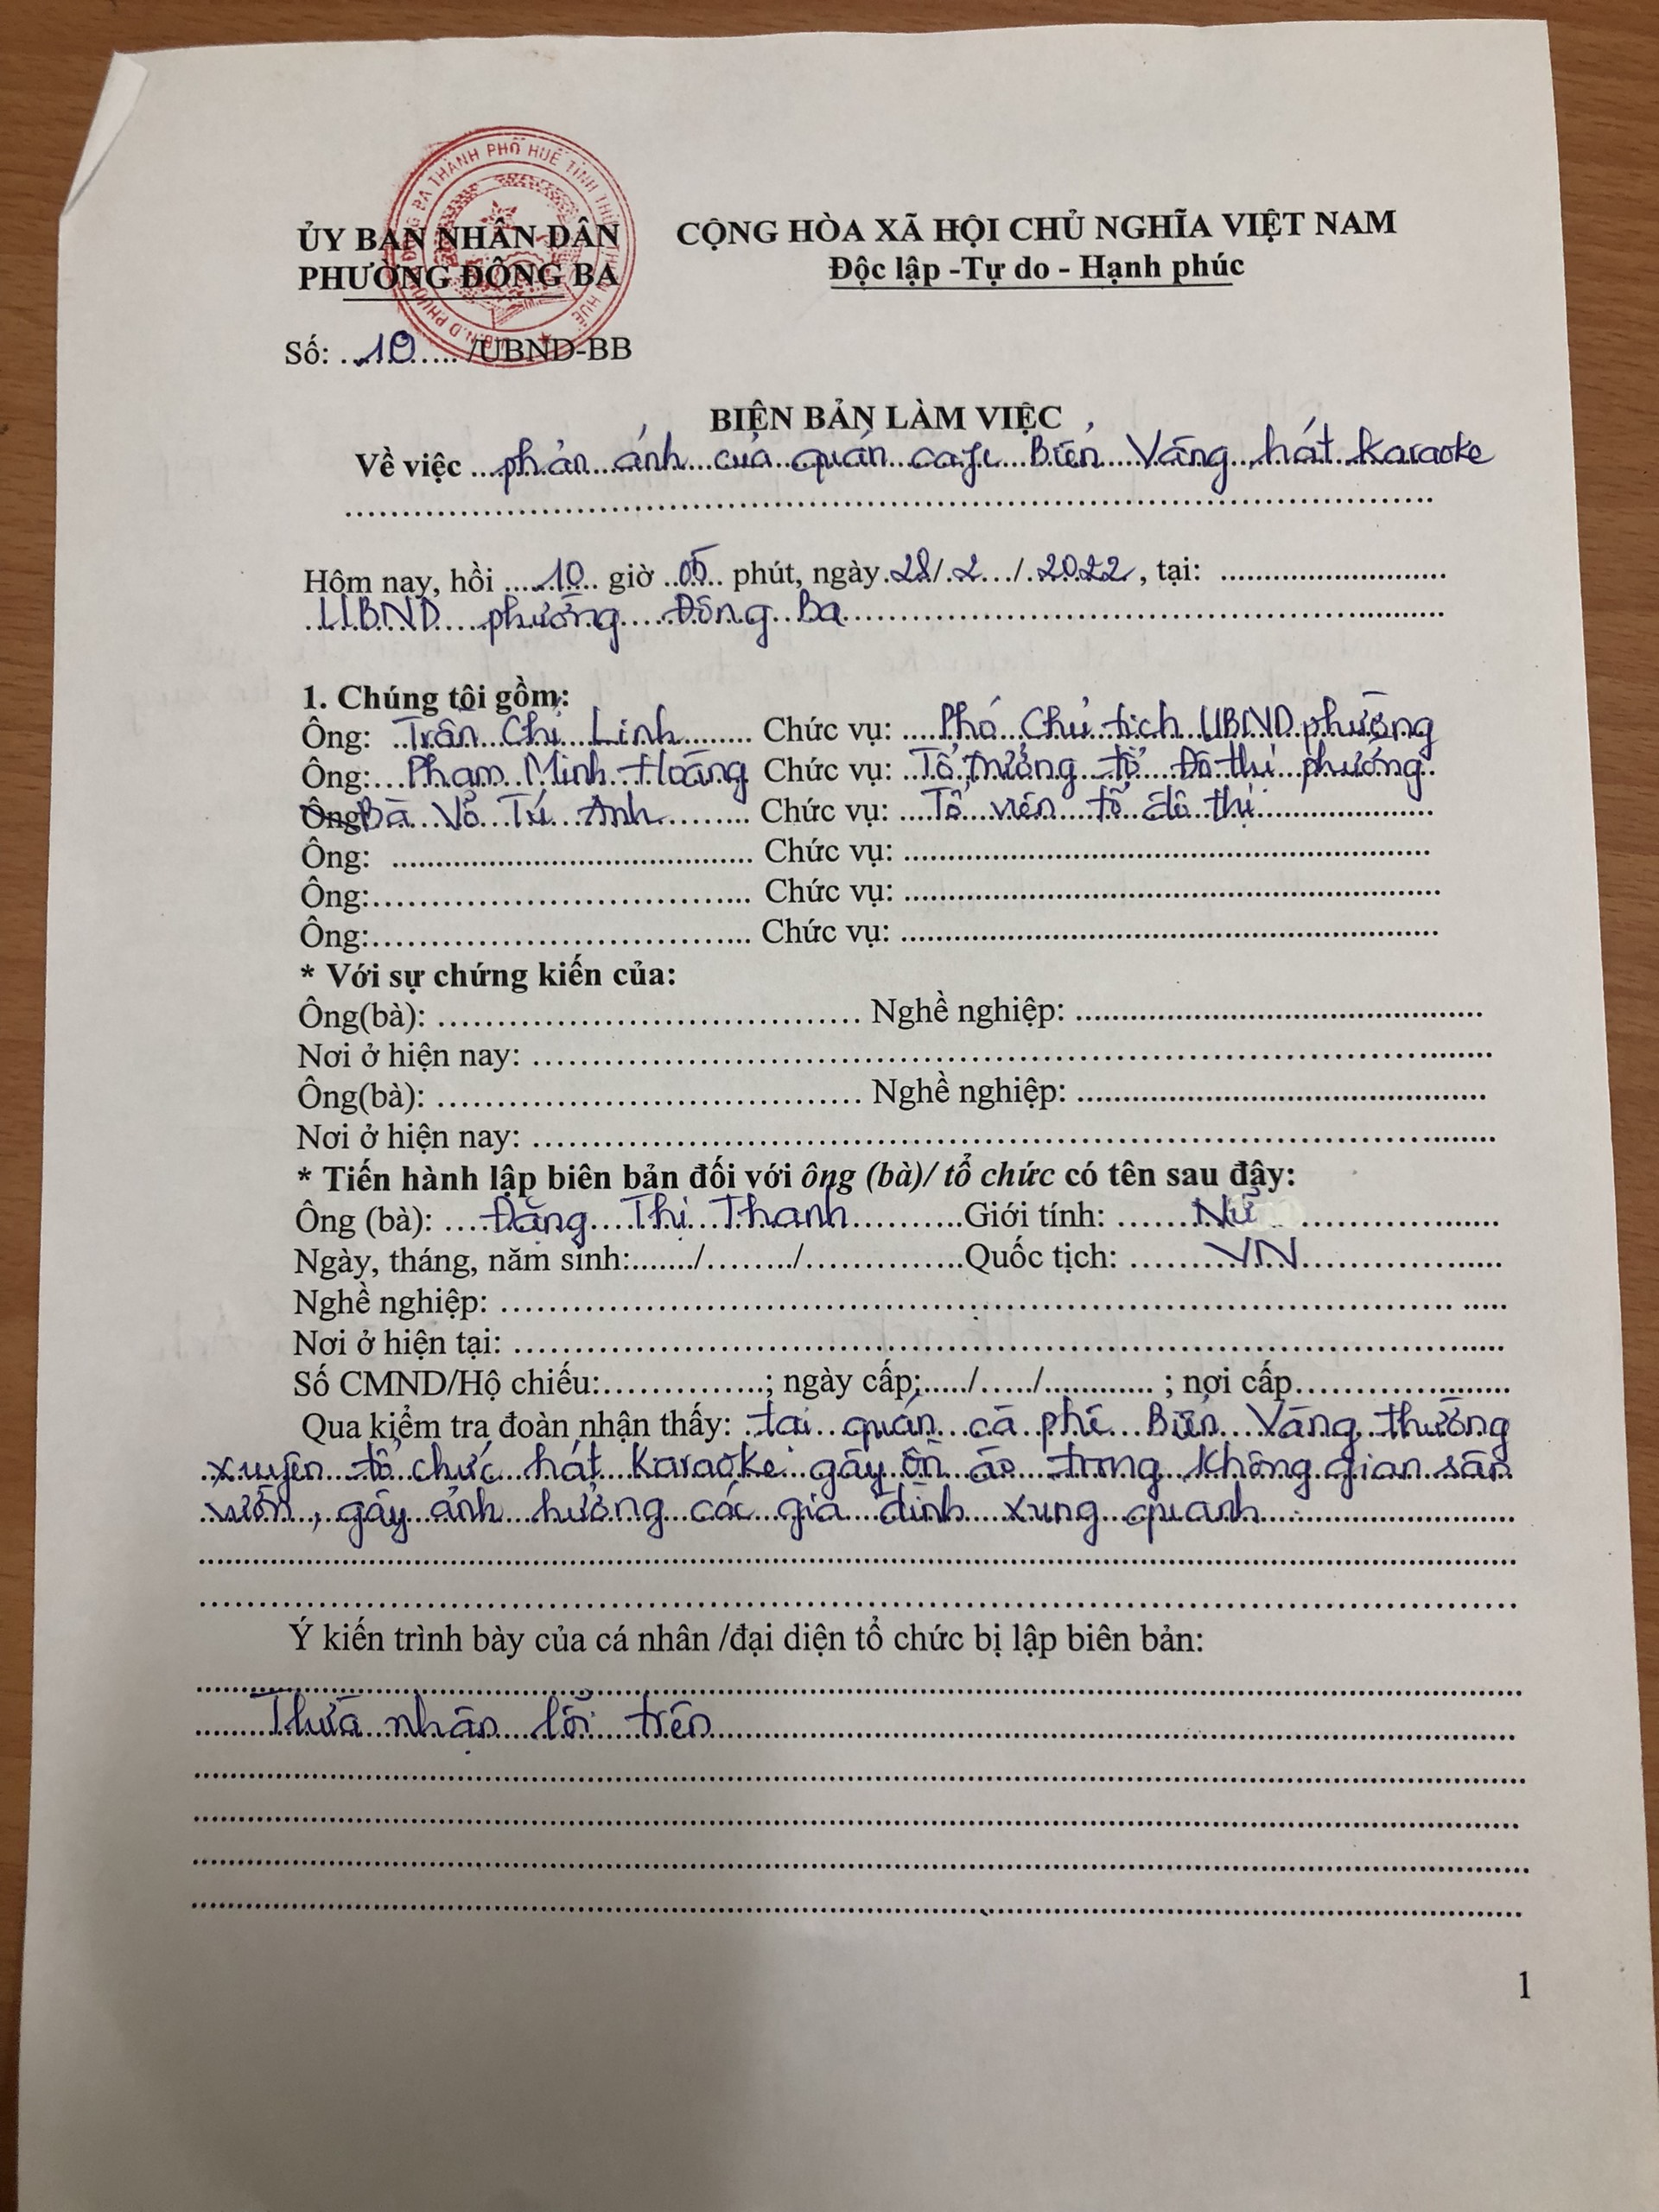 ỦY BAN NHÂN DÂN
PHƯỜNG ĐÔNG BA
CỘNG HÒA XÃ HỘI CHỦ NGHĨA VIỆT NAM
Độc lập -Tự do - Hạnh phúc
Số: ..10...... /UBND-BB
BIÊN BẢN LÀM VIỆC
Về việc ...phản ánh của quán cafe Biển Vàng hát Karaoke
Hôm nay, hồi ....10.. giờ ..05.. phút, ngày 28/.2.../.2022, tại: ..........................
UBND phường Đông Ba
1. Chúng tôi gồm:
Ông: Trần Chí Linh........ Chức vụ: ....Phó Chủ tịch UBND phường
Ông:...Phạm Minh Hoàng Chức vụ: ..Tổ trưởng tổ Đô thị phường
Ông Bà Võ Tú Anh......... Chức vụ: ...Tổ viên tổ đô thị..................
Ông: ........................................ Chức vụ: ..........................................................
Ông:..................................... Chức vụ: ..........................................................
Ông:..................................... Chức vụ: ..........................................................
* Với sự chứng kiến của:
Ông(bà): ........................................ Nghề nghiệp: .............................................
Nơi ở hiện nay: ..........................................................................................
Ông(bà): ........................................ Nghề nghiệp: .............................................
Nơi ở hiện nay: ..........................................................................................
* Tiến hành lập biên bản đối với ông (bà)/ tổ chức có tên sau đây:
Ông (bà): ....Đặng Thị Thanh..........Giới tính: .......Nữ....................
Ngày, tháng, năm sinh:......./......../...............Quốc tịch: .......VN....................
Nghề nghiệp: ..........................................................................................
Nơi ở hiện tại: ..........................................................................................
Số CMND/Hộ chiếu:...............; ngày cấp:...../...../............ ; nơi cấp....................
Qua kiểm tra đoàn nhận thấy: tại quán cà phê Biển Vàng thường
xuyên tổ chức hát Karaoke gây ồn ào trong không gian sân
vườn, gây ảnh hưởng các gia đình xung quanh
Ý kiến trình bày của cá nhân /đại diện tổ chức bị lập biên bản:
Thừa nhận lỗi trên
1